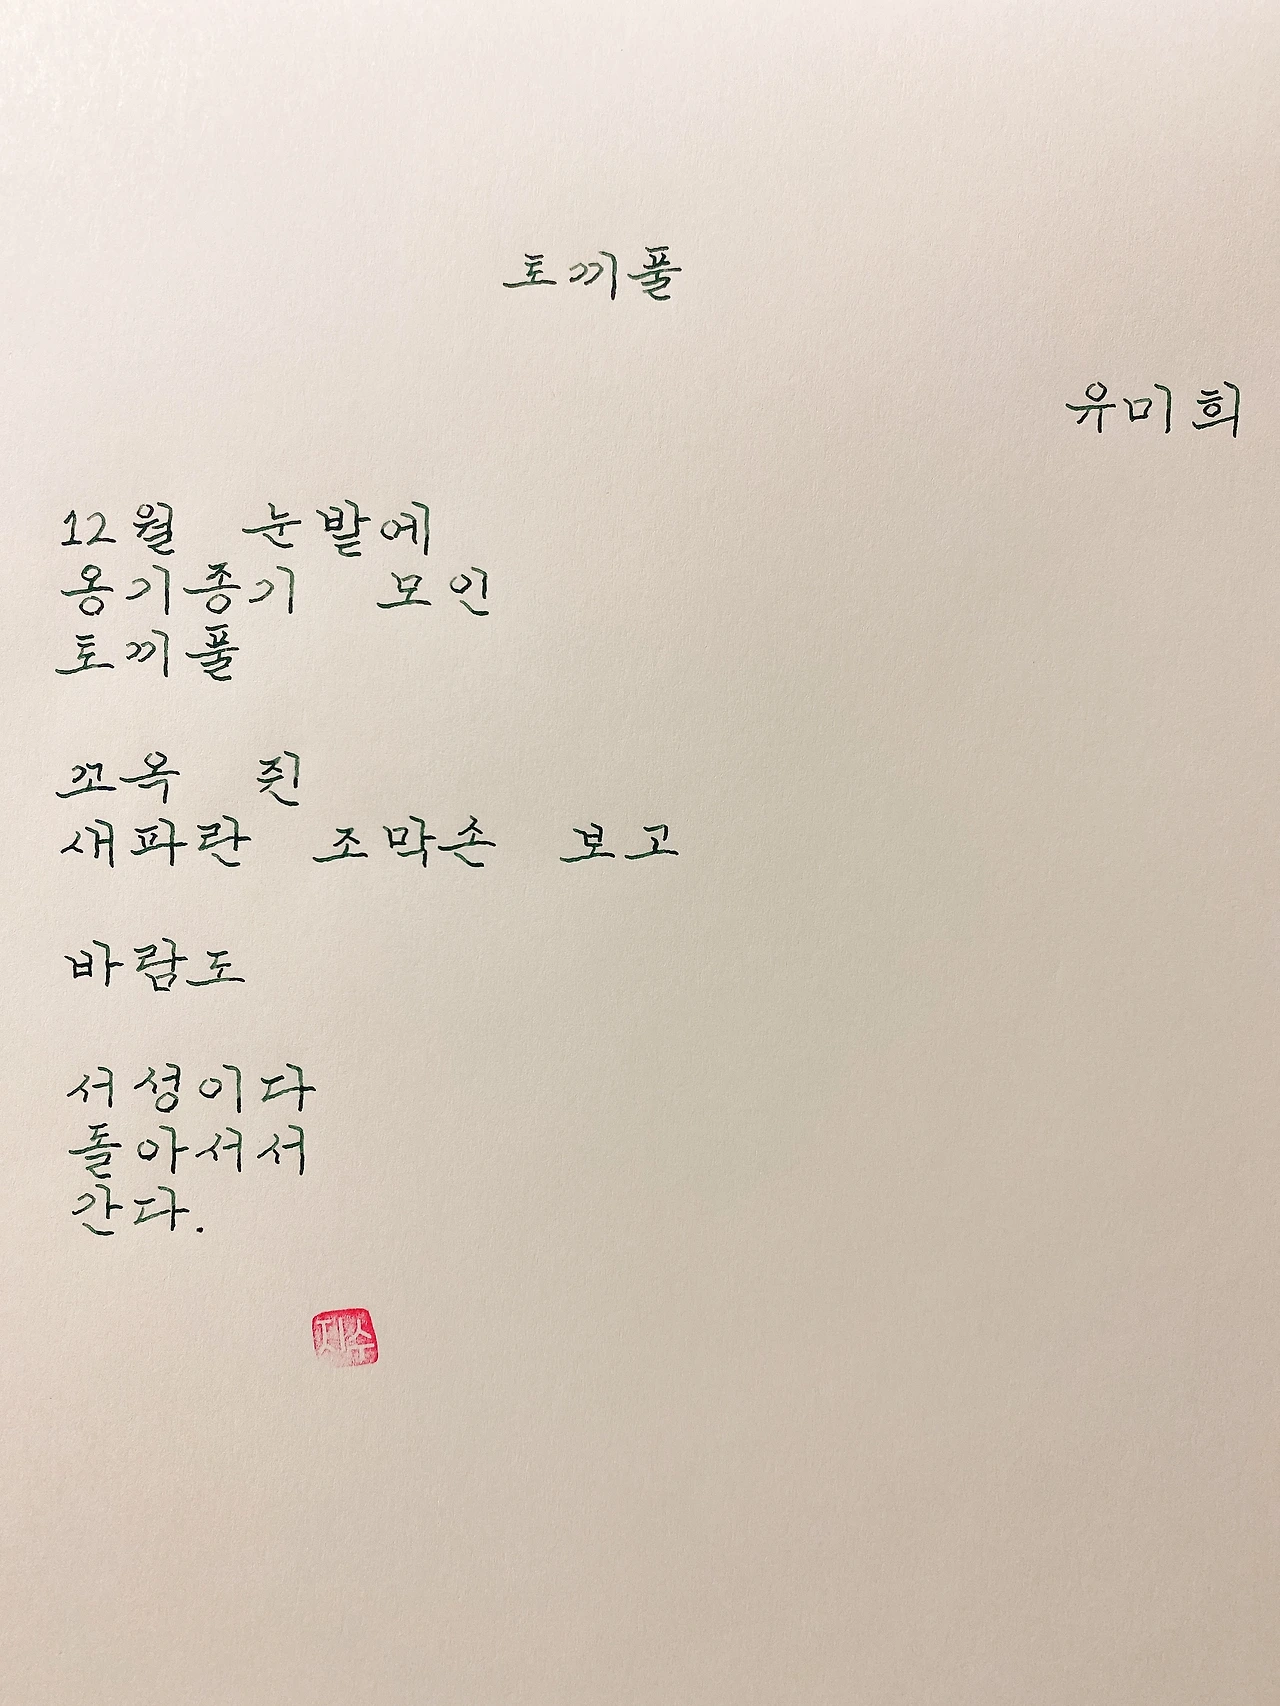 토끼풀
유미희
12월 눈밭에
옹기종기 모인
토끼풀
꼬옥 쥔
새파란 조막손 보고
바람도
서성이다
돌아서서
간다.
지수